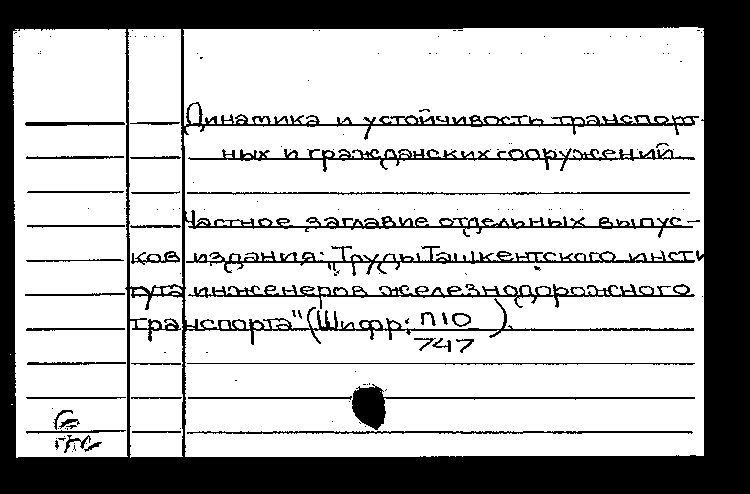 Динамика и устойчивость транспорт-
ных и гражданских сооружений
Частное заглавие отдельных выпус-
ков издания: "Труды Ташкентского инсти
тута инженеров железнодорожного
транспорта" (Шифр: П10/747).